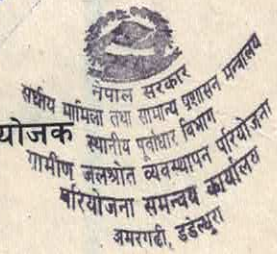 नेपाल सरकार
संघीय मामिला तथा सामान्य प्रशासन मन्त्रालय
स्थानीय पूर्वाधार विभाग
योजक
ग्रामीण जलश्रोत व्यवस्थापन परियोजना
परियोजना समन्वय कार्यालय
अमरगढी, डडेल्धुरा